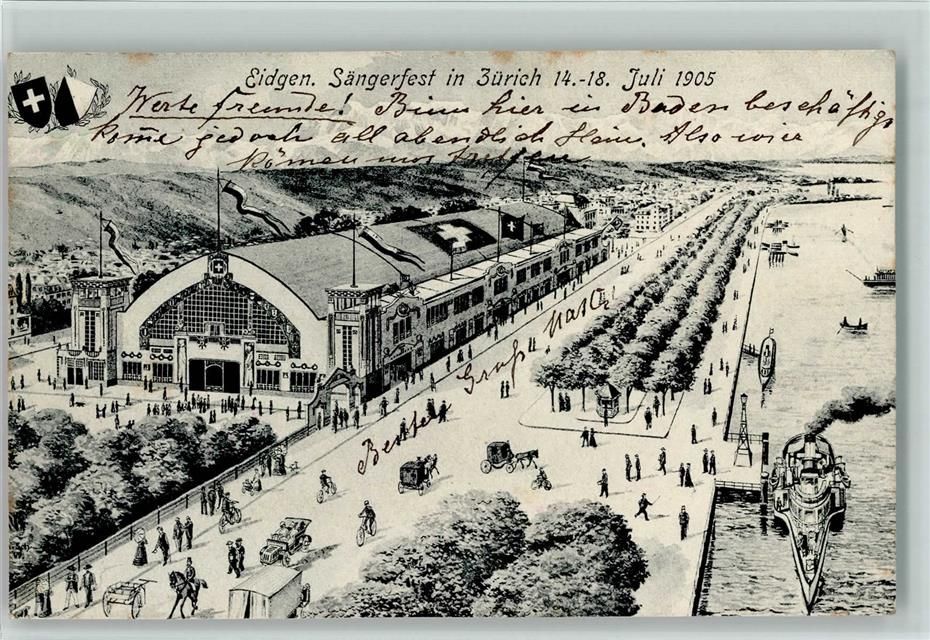 Eidgen. Sängerfest in Zürich 14.-18. Juli 1905
Werte Freunde! Binn hier in Baden beschäftig
kome jedoch all abendlich Heim. Also wier
könen uns treffen
Besten Gruß